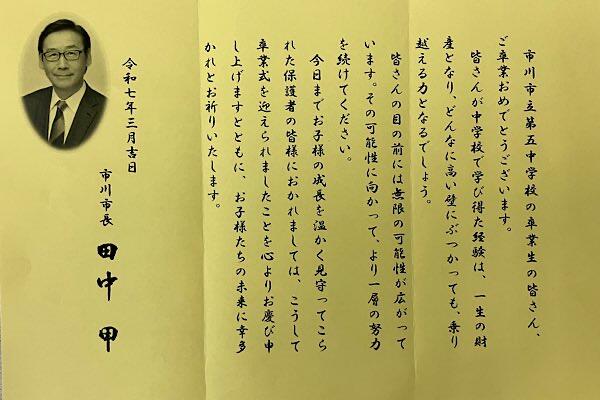 市川市立第五中学校の卒業生の皆さん、
ご卒業おめでとうございます。
皆さんが中学校で学び得た経験は、一生の財
産となり、どんなに高い壁にぶつかっても、乗り
越える力となるでしょう。
皆さんの目の前には無限の可能性が広がって
います。その可能性に向かって、より一層の努力
を続けてください。
今日までお子様の成長を温かく見守ってこら
れた保護者の皆様におかれましては、こうして
卒業式を迎えられましたことを心よりお慶び申
し上げますとともに、お子様たちの未来に幸多
かれとお祈りいたします。
令和七年三月吉日
市川市長 田中 甲